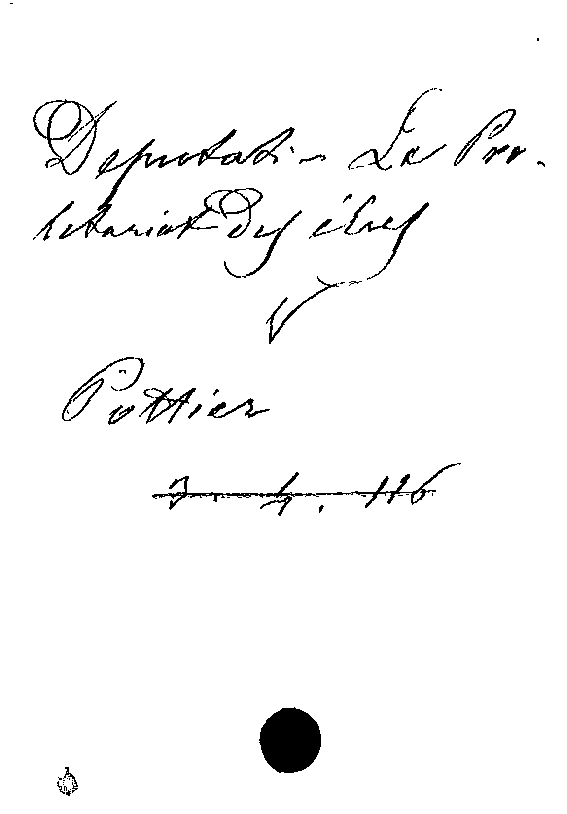 Deputati - Le Pro-
letariat Des élus
V
Pottier
3. 4. 116